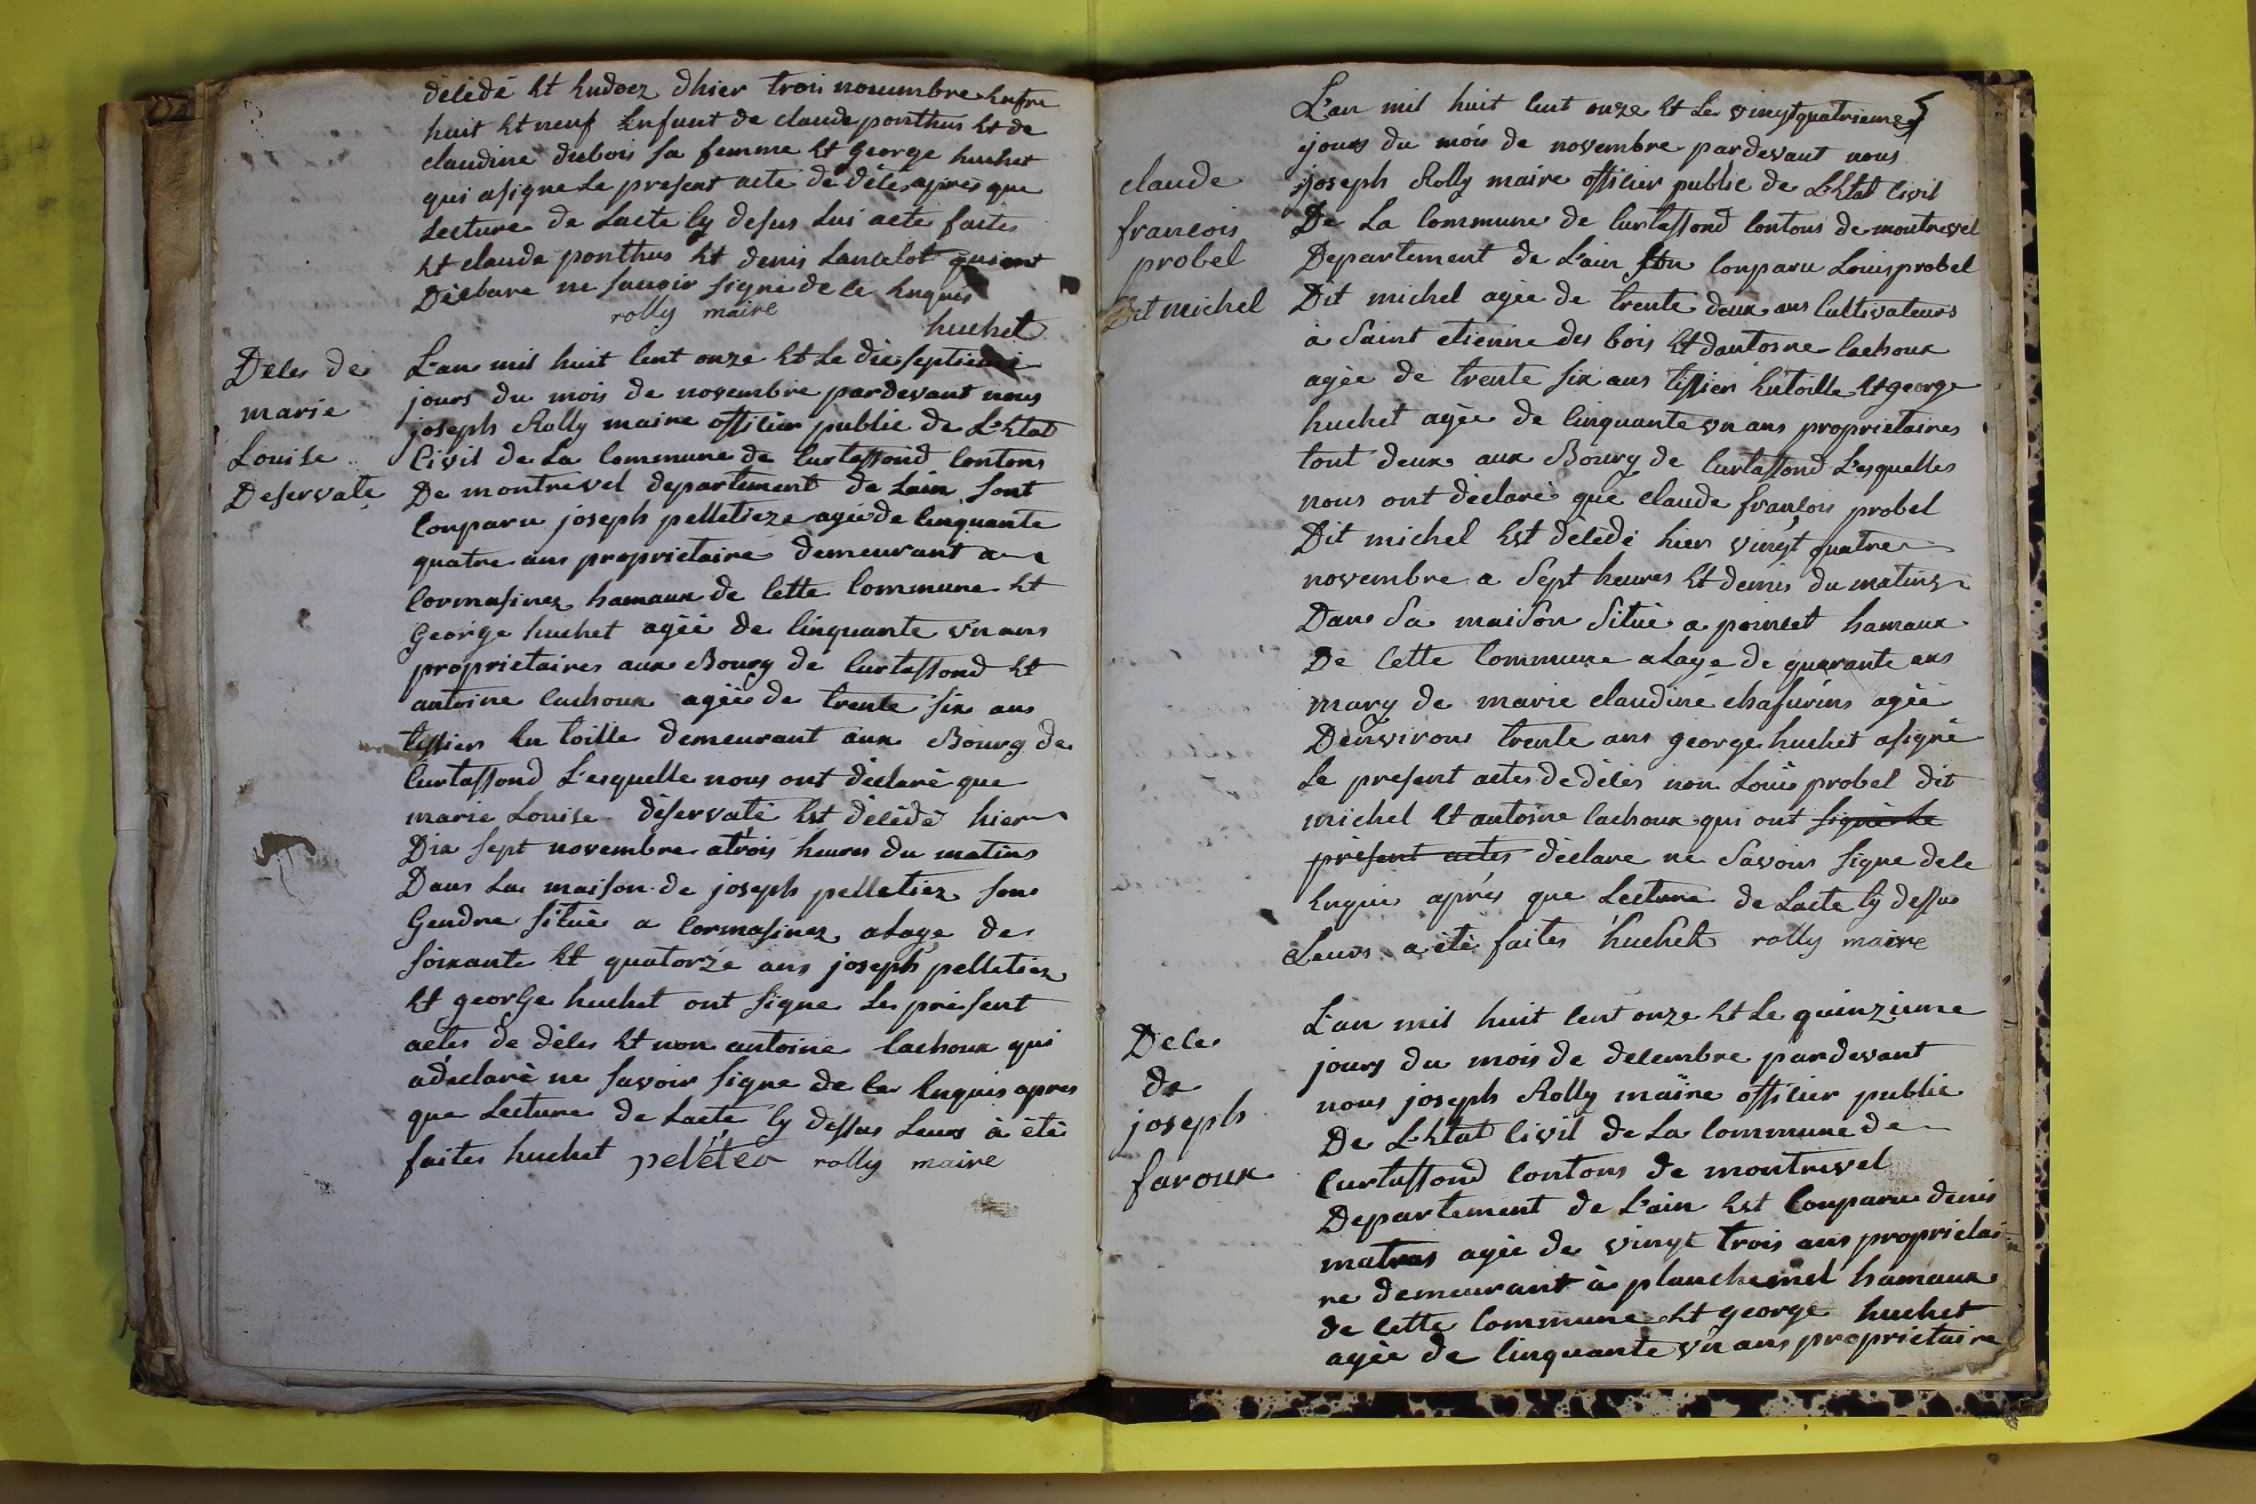 décédé Et Endoez dhier trois nouembre Entre
huit Et neuf Enfant de claude ponthus Et de
claudine dubois sa femme Et George huchet
qui asigne Le present acte de déles apres que
Lecture de Lacte Cy desus Lui aété faites
Et claude ponthus Et denis Lancelot qui ont
Déclare ne savoir signe de ce Enquis
rolly maire
huchet
Déles de
marie
Louise
Deservate
L'an mil huit Cent onze Et Le dix septieme
jours du mois de novembre pardevant nous
joseph Rolly maire officier public de L'Etat
Civil de La Commune de Curtassond Contons
De montrevel departement de Lain sont
Conparu joseph pelletieze agée de Cinquante
quatre ans proprietaire demeurant a
Cormasinez hamaux de Cette Commune Et
George huchet agée de Cinquante vn ans
proprietaires aux Bourg de Curtassond Et
antoine cachoux agée de trente six ans
tissier En toille demeurant aux Bourg de
Curtassond L'esquelle nous ont déclaré que
marie Louise déservaté Est décédé hier
Dix sept novembre atrois heures du matins
Dans La maison de joseph pelletiez son
Gendre situé a Cormasinez aLage de
soixante Et quatorze ans joseph pelletiez
Et george huchet ont signe Le present
actes de déles Et non antoine Cachoux qui
adeclaré ne savoir signe de ce Enquis apres
que Lecture de Lacte Cy dessus Leurs à été
faites huchet peléter rolly maire
claude
francois
probel
Dit michel
L'an mil huit Cent onze Et Le vingt quatrieme
jours du mois de novembre pardevant nous
joseph Rolly maire officier public de L'Etat Civil
De La Commune de Curtassond Contons de montrevel
Departement de L'ain Conparu Louis probel
Dit michel agée de trente deux ans Cultivateurs
a Saint etienne des bois Et dantoine Cachoux
agée de trente six ans tissier Entoille Et george
huchet agée de Cinquante vn ans proprietaires
tout deux aux Bourg de Curtassond L'esquelles
nous ont déclaré que claude francois probel
Dit michel Est décédé hier vingt quatre
novembre a Sept heures Et demis du matins
Dans Sa maison Situé a poincet hamaux
De Cette Commune aLage de quarante ans
mary de marie claudine chafurins agée
Denvirons trente ans george huchet asigné
Le present actes dedéles non Louis probel dit
michel Et antoine Cachoux qui ont signé Le
present actes déclare ne Savoir signe dele
Enquis aprés que Lecture de Lacte Cy dessus
Leurs a été faites huchet rolly maire
Dece
de
joseph
faroux
L'an mil huit Cent onze Et Le quinzieme
jours du mois de decembre pardevant
nous joseph Rolly maire officier public
De L'Etat Civil de La Commune de
Curtassond Contons de montrevel
Departement de L'ain Est Conparu denis
matras agée de vingt trois ans proprietai
re demeurant à planchemel hamaux
de Cette Commune Et george huchet
agée de Cinquante vn ans proprietaire